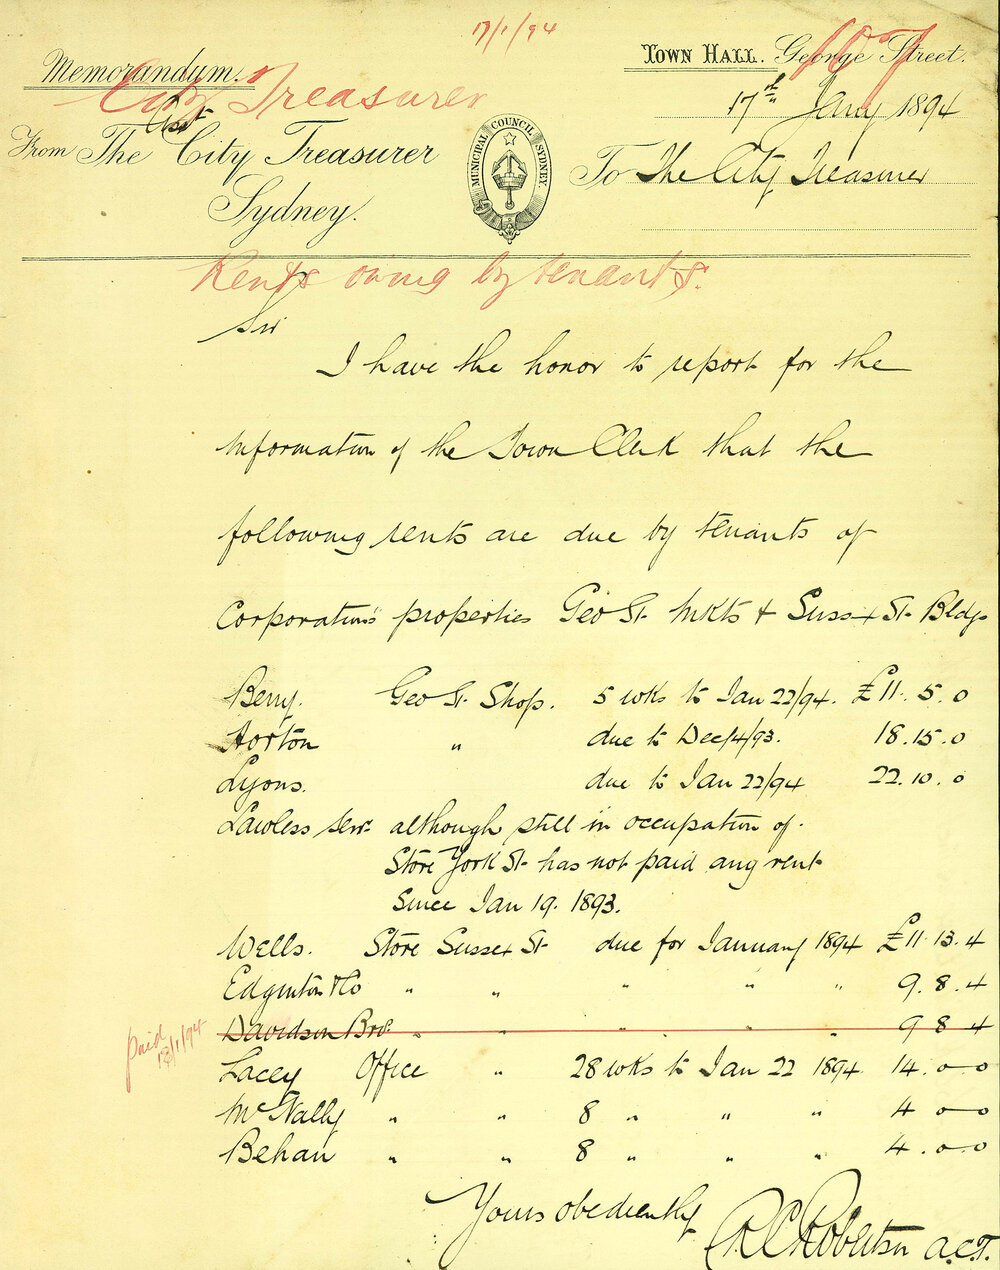 17/1/94
Memorandum.
TOWN HALL. George Street.
107
City Treasurer
17th Jany 1894
Asst
From The City Treasurer
Sydney.
MUNICIPAL COUNCIL SYDNEY
To The City Treasurer
Rents owing by tenants.
Sir
I have the honor to report for the
information of the Town Clerk that the
following rents are due by tenants of
Corporation properties Geo St. Mkts & Sussex St. Bldgs
Berry. Geo St. Shop. 5 wks to Jan 22/94. £11. 5. 0
Horton " due to Dec/4/93. 18. 15. 0
Lyons. due to Jan 22/94 22. 10. 0
Lawless Senr. although still in occupation of.
Store York St. has not paid any rent
Since Jan 19. 1893.
Wells. Store Sussex St due for January 1894 £11. 13. 4
Edginton & Co " " " " " 9. 8. 4
Davidson Bro. " " " " " 9 8 4
paid
13/1/94
Lacey Office " 28 wks to Jan 22 1894 14. 0 0
McNally " " 8 " " " 4 0 0
Behan " " 8 " " " 4. 0. 0
Yours obediently
R C Robertson A.C.T.